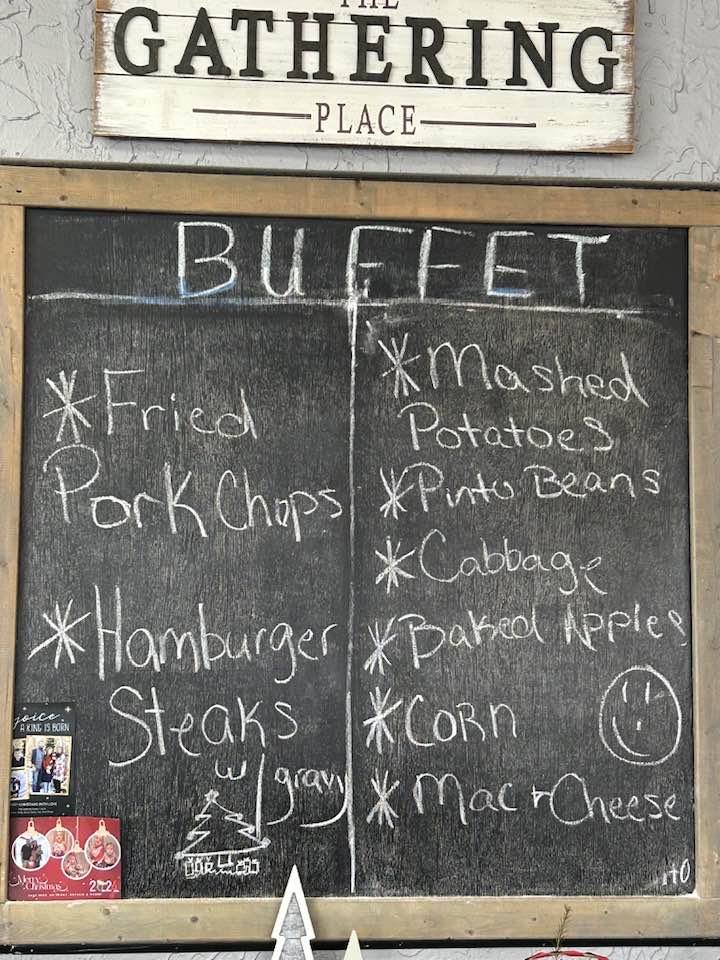 THE
GATHERING
PLACE
BUFFET
*Fried
Pork Chops
*Hamburger
Steaks
w/ gravy
*Mashed
Potatoes
*Pinto Beans
*Cabbage
*Baked Apples
*Corn
*Mac + Cheese
A KING IS BORN
Merry
Christmas